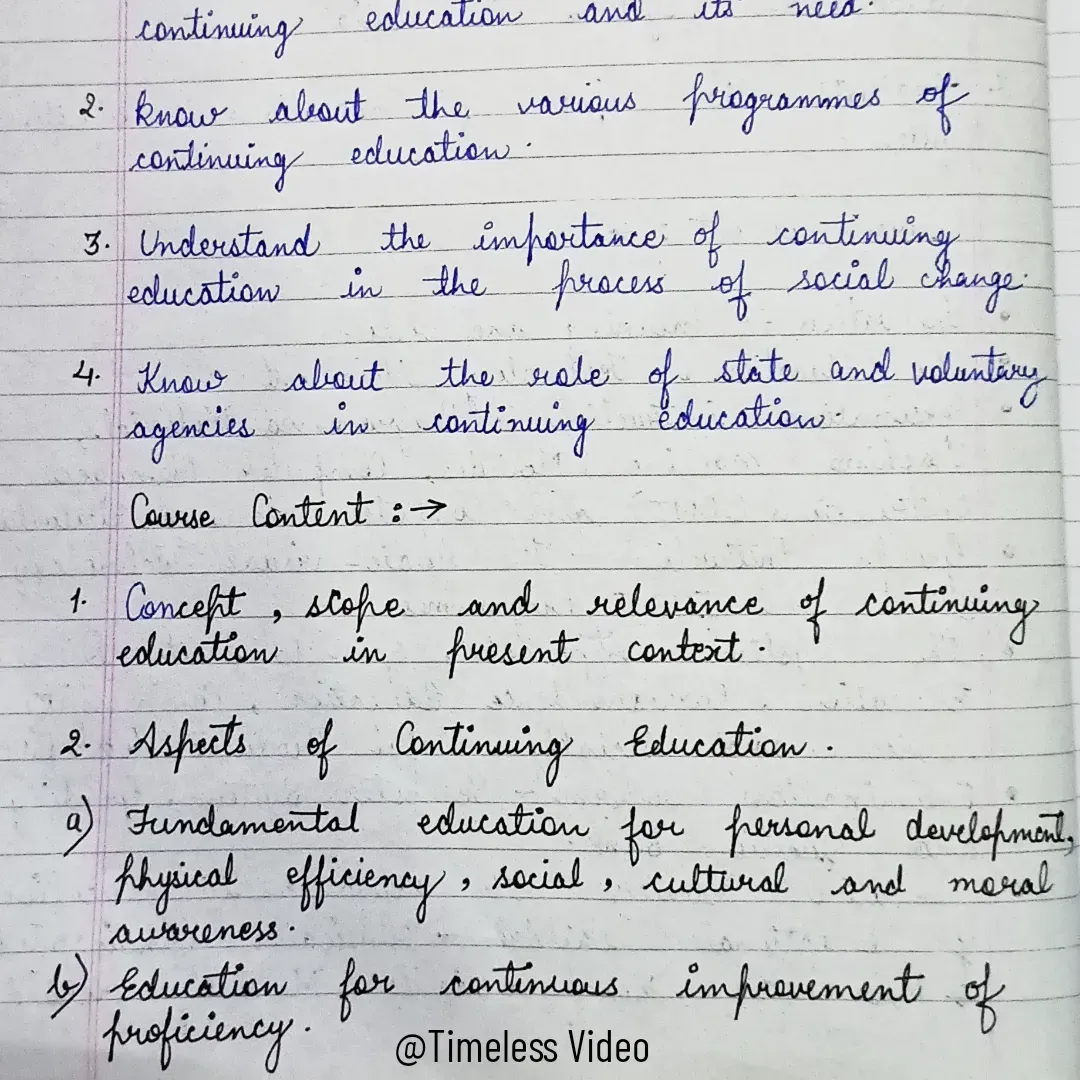 continuing education and its need.
2. know about the various programmes of
continuing education.
3. Understand the importance of continuing
education in the process of social change.
4. Know about the role of state and voluntary
agencies in continuing education.
Course Content :→
1. Concept, scope and relevance of continuing
education in present context.
2. Aspects of Continuing Education.
a) Fundamental education for personal development,
physical efficiency, social, cultural and moral
awareness.
b) Education for continuous improvement of
proficiency.
@Timeless Video